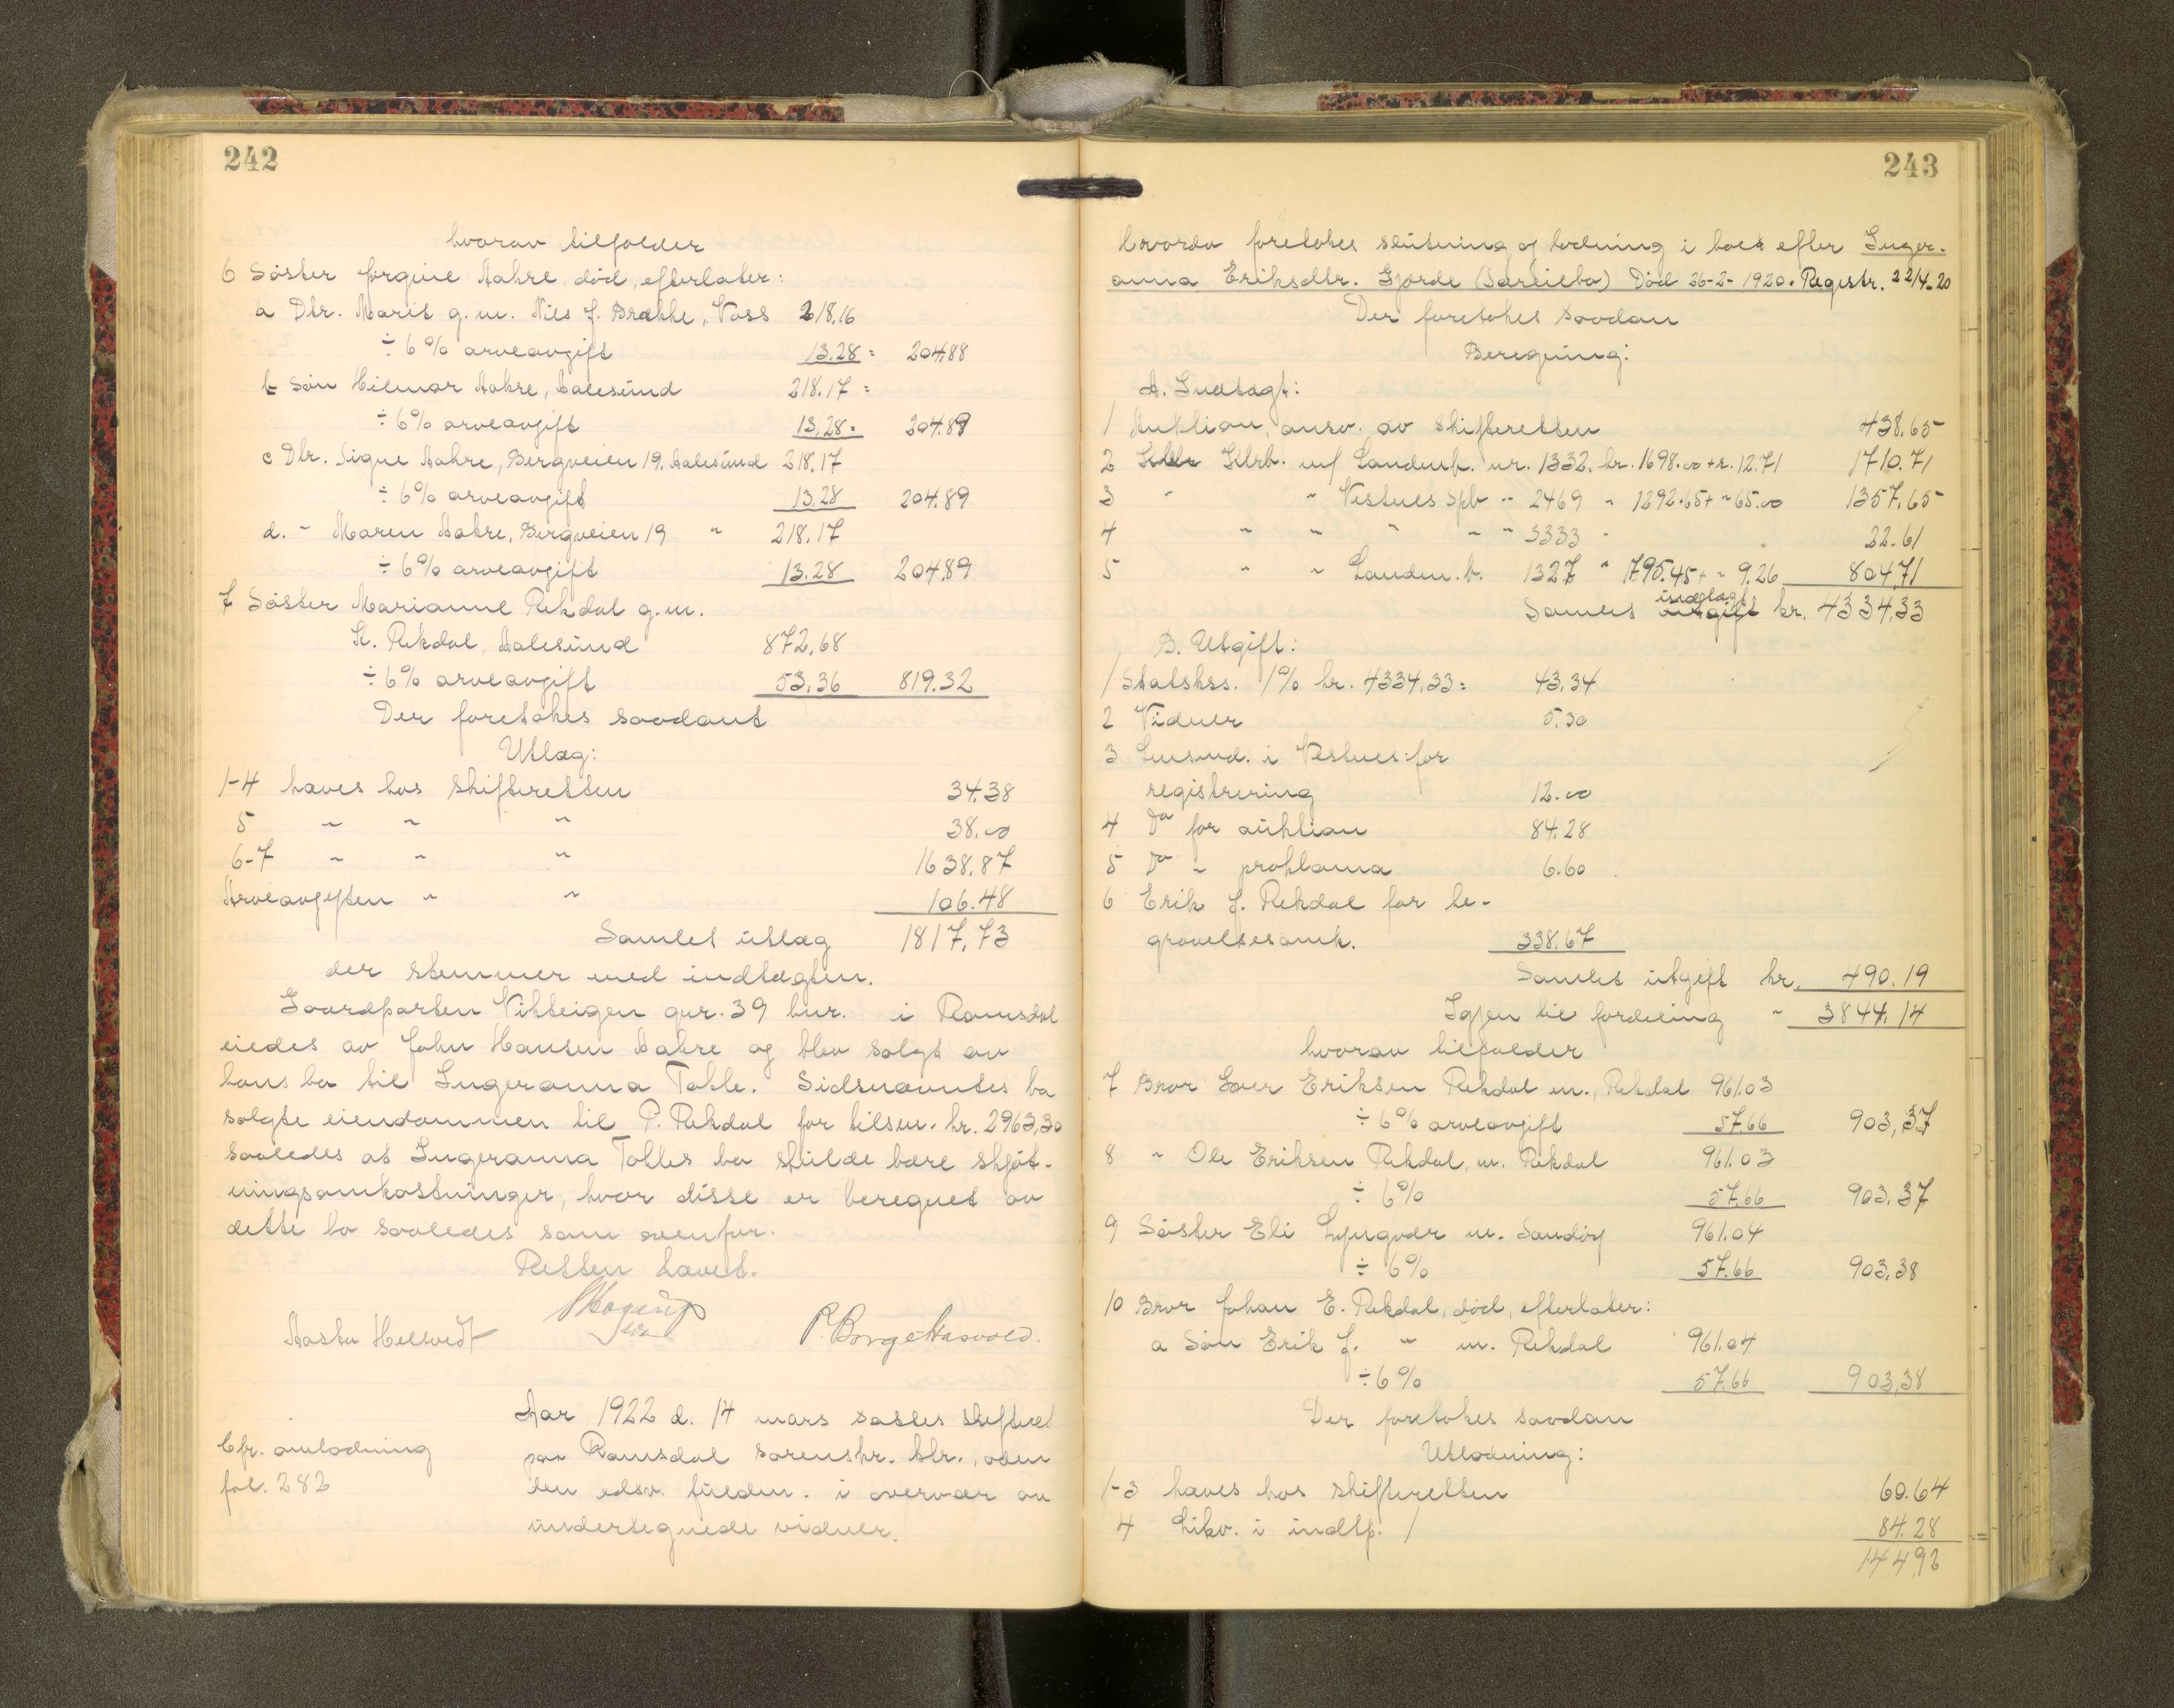 242
hvorav tilfalder
6 Søster Jørgine Aahre, død, efterlater:
a Dtr. Marit g.m. Nils J. Brakke, Voss 218,16
÷ 6% arveavgift 13.28 = 204.88
b Søn Hilmar Aahre, Aalesund 218.17 =
÷ 6% arveavgift 13.28 = 204.89
c Dtr. Signe Aahre, Bergveien 19. Aalesund 218,17
÷ 6% arveavgift 13.28 204.89
d. - Maren Aahre, Bergveien 19 " 218.17
÷ 6% arveavgift 13.28 204.89
7 Søster Marianne Rekdal g.m.
K. Rekdal, Aalesund 872,68
÷ 6% arveavgift 53,36 819.32
Der foretokes saadant
Utlæg:
1-4 haves hos skifteretten 34.38
5 " " " 38.00
6-7 " " " 1638,87
Arveavgiften " " 106.48
Samlet utlæg 1817,73
der stemmer med indtægten.
Gaardparten Vikteigen gnr. 39 bnr. i Romsdal
eiedes av John Hansen Aahre og blev solgt av
hans bo til Ingeranna Tokle. Sidstnævntes bo
solgte eiendommen til P. Rekdal for tilsm. kr. 2963,30
saaledes at Ingeranna Tokles bo skulde bære skjøt-
ningsomkostninger, hvor disse er beregnet av
dette bo saaledes som ovenfor.
Retten hævet.
Aasta Hellvedt P. Borge Hasvold.
Aar 1922 d. 14 mars sattes skifteret
paa Romsdal sorenskr. ktr., av den
Cfr. omlodning
fol. 282
ten edsv. fuldm. i overvær av
undertegnede vidner.
243
Hvorda foretokes slutning og lodning i boet efter Inger-
anna Eriksdtr. Gjørde (Særeiebo) Død 26-2-1920. Registr. 22/4-20
Der foretokes saadan
Beregning:
A. Indtægt:
1 Auktion, ansv. av skifteretten 438.65
2 Ktrb. m/ Landmb. nr. 1332, kr. 1698.00 + r. 12.71 1710.71
3 " " Vestnes Spb " 2469 " 1292.65 + " 65.00 1357.65
4 " " " " " 3333 " 22.61
5 " " Landm. b. 1327 " 795.45 + " 9.26 804,71
Samlet indtægt kr. 4334,33
B. Utgift:
1 Statskss. 1% kr. 4334,33 = 43,34
2 Vidner 5.30
3 Lensmd. i Vestnes for
registrering 12.00
4 Do for auktion 84.28
5 Do " proklama 6.60
6 Erik J. Rekdal for be-
gravelsesomk. 338.67
Samlet utgift kr. 490.19
Igjen til fordeling " 3844,14
hvorav tilfalder
7 Bror Iver Eriksen Rekdal m., Rekdal 961.03
÷ 6% arveavgift 57.66 903,37
8 " Ole Eriksen Rekdal, m. Rekdal 961.03
÷ 6% 57.66 903,37
9 Søster Eli Lyngvær m. Sandøy 961.04
÷ 6% 57.66 903,38
10 Bror Johan E. Rekdal, død, efterlater:
a Søn Erik J. " m. Rekdal 961.04
÷ 6% 57.66 903,38
Der foretokes saadan
Utlodning:
1-3 haves hos skifteretten 60.64
4 Likv. i indtp. 1 84.28
144,92